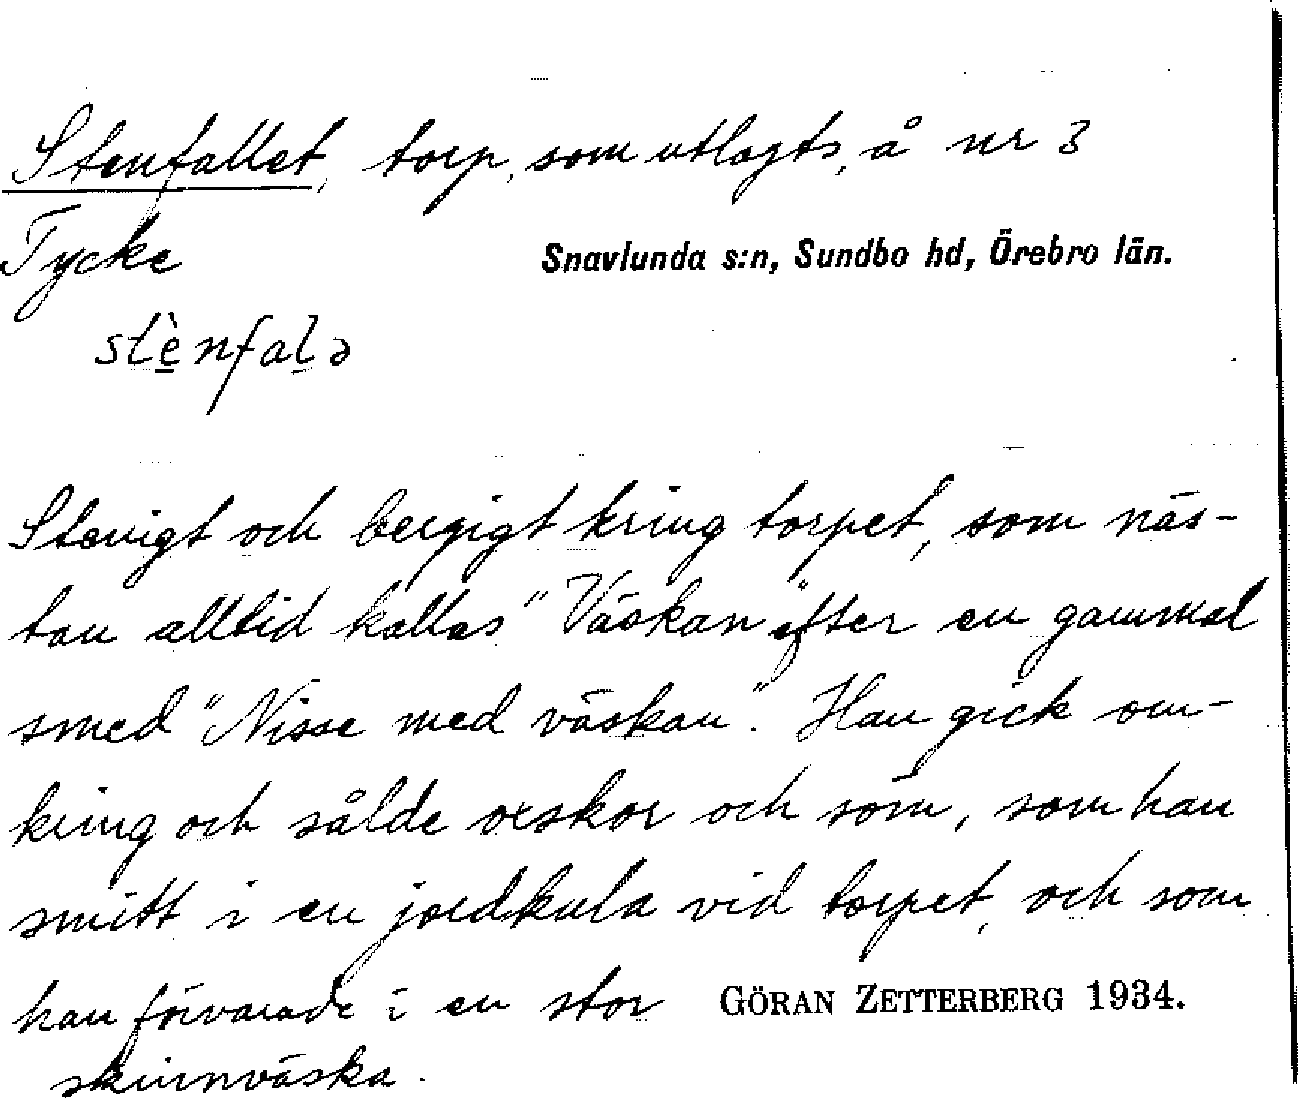 Stenfallet, torp, som utlagts, å nr 3
Tycke
Snavlunda s:n, Sundbo hd, Örebro län.
stènfalə
Stenigt och bergigt kring torpet, som näs-
tan alltid kallas "Väskan" efter en gammal
smed "Nisse med väskan". Han gick om-
kring och sålde oxskor och söm, som han
smitt i en jordkula vid torpet, och som
han förvarade i en stor
GÖRAN ZETTERBERG 1934.
skinnväska.